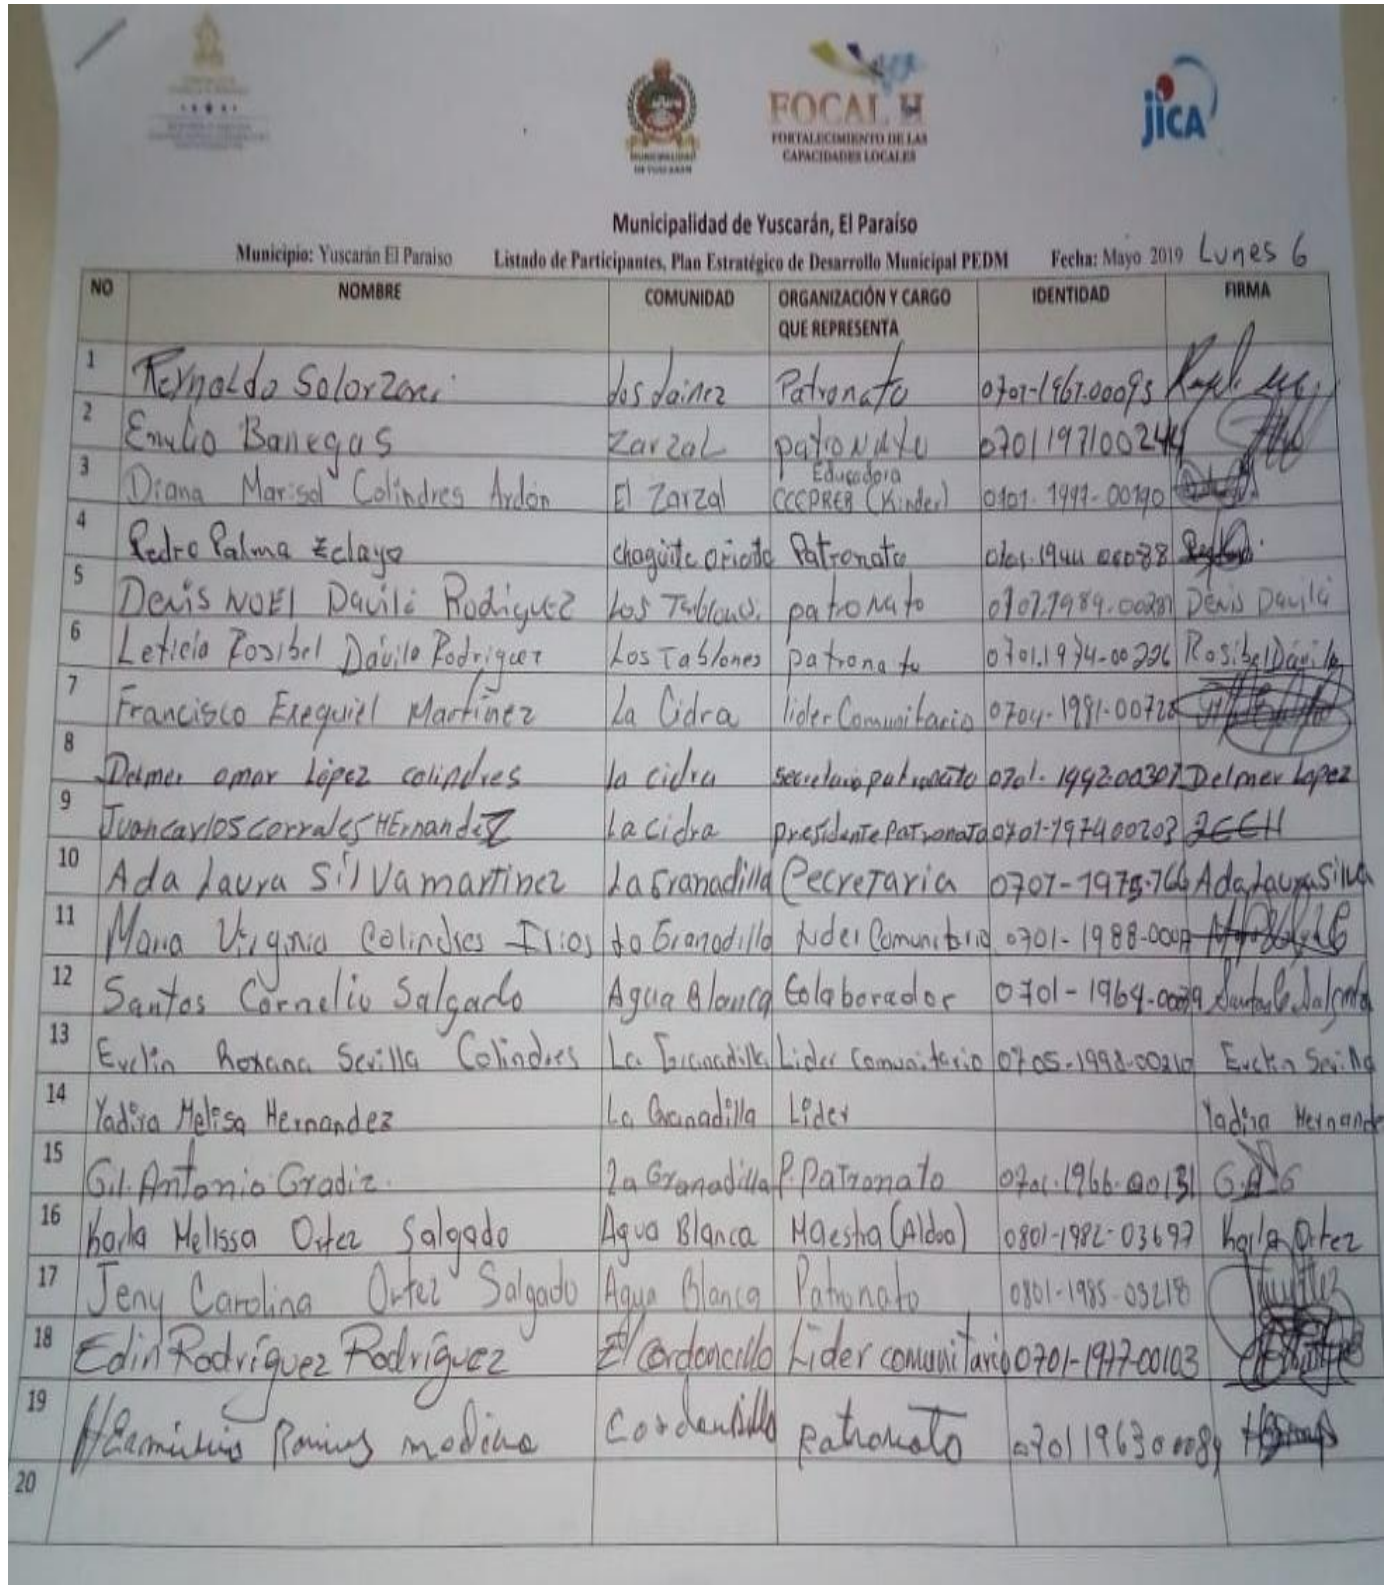 MUNICIPALIDAD
DE YUSCARÁN
FOCAL H
FORTALECIMIENTO DE LAS
CAPACIDADES LOCALES
jica
Municipalidad de Yuscarán, El Paraíso
Municipio: Yuscarán El Paraiso Listado de Participantes, Plan Estratégico de Desarrollo Municipal PEDM Fecha: Mayo 2019 Lunes 6
NO NOMBRE COMUNIDAD ORGANIZACIÓN Y CARGO QUE REPRESENTA IDENTIDAD FIRMA
1 Reynaldo Patronato
2 Emilio Banegas Zarzal patronato 0701197100244
3 Diana Marisol Colindres Ardón El Zarzal Educadora CCEPREB (Kinder)
4 Pedro Palma Zelaya chagüite oriente Patronato
5 Denis NOEl Davila Rodriguez Los Tablones patronato Denis Davila
6 Leticia Rosibel Dávila Rodriguez Los Tablones patronato 0701.1974-00226 Rosibel Dávila
7 Francisco Exequiel Martínez La Cidra lider Comunitario
8 Delmer omar López colindres la cidra secretario patronato 0701-1992-00307 Delmer Lopez
9 Juan carlos corrales HErnandeZ La cidra presidente Patronato 0701-197400203 JCCH
10 Ada Laura SilVa martinez La Granadilla Cecretaria Ada Laura Silva
11 Maria Virginia Colindres La Granadilla Lider Comunitario
12 Santos Cornelio Salgado Agua Blanca Colaborador Santos C Salgado
13 Evelin Roxana Sevilla Colindres La Granadilla Lider Comunitario Evelin Sevilla
14 Yadira Melisa Hernandez La Granadilla Lider Yadira Hernande
15 Gil. Antonio Gradiz La Granadilla P. Patronato 0701-1966-00131 G.A.G
16 Karla Melissa Ortez Salgado Agua Blanca Maestra (Aldea) 0801-1982-03697 Karla Ortez
17 Jeny Carolina Ortez Salgado Agua Blanca Patronato 0801-1985-03218
18 Edin Rodríguez Rodríguez El Cordoncillo Lider comunitario 0701-1977-00103
19 medina Patronato
20